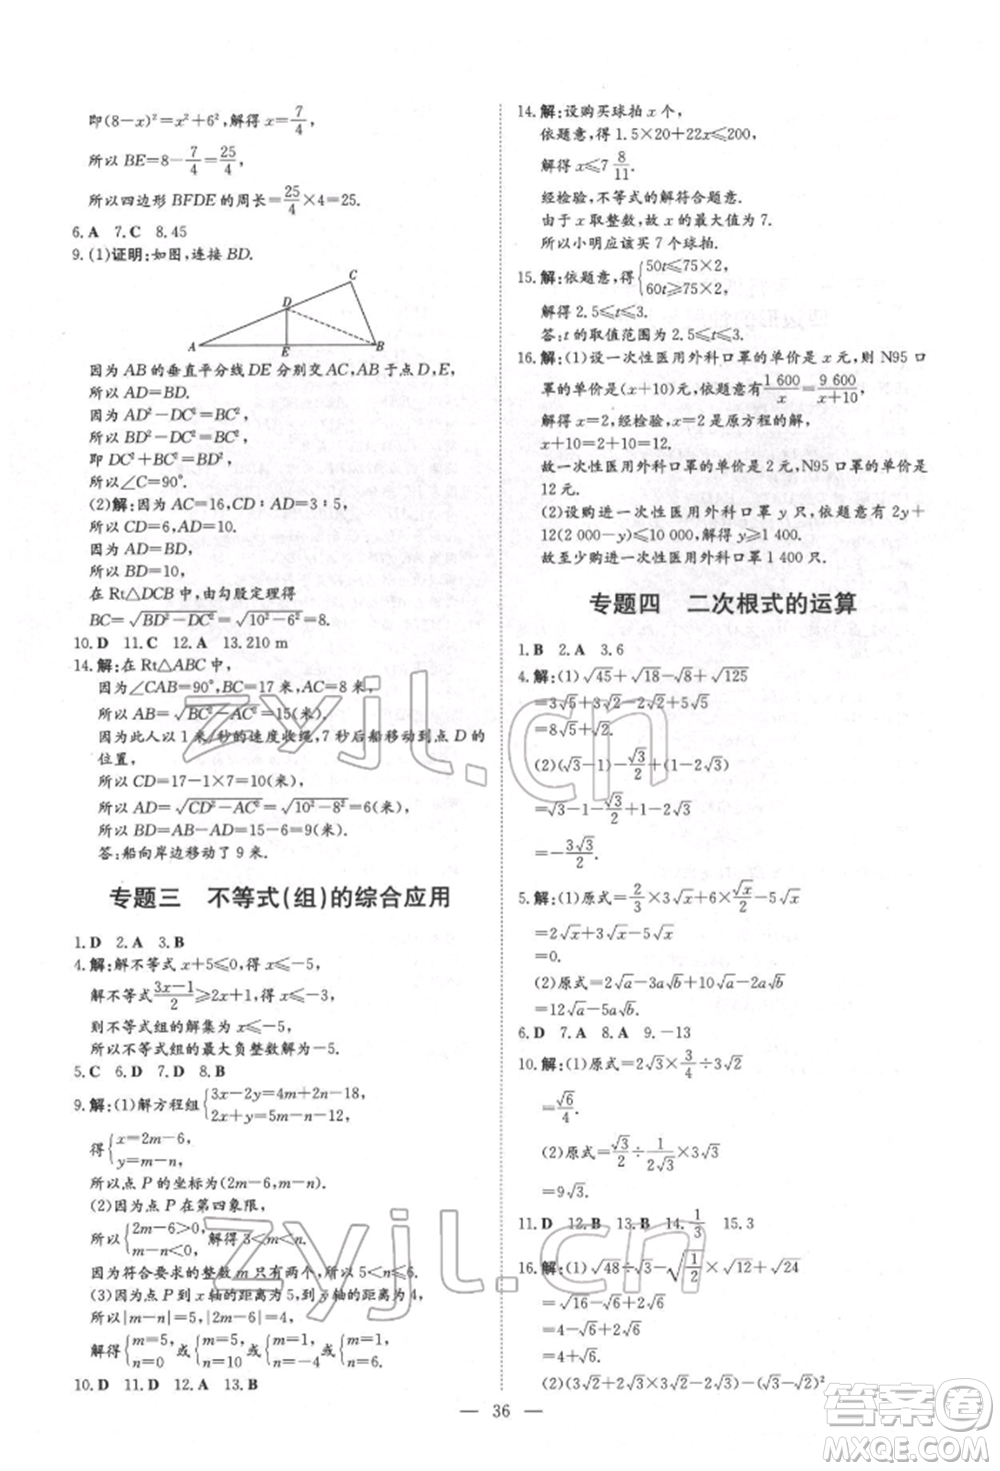 即(8-x)²=x²+6²,解得x=7/4,
所以BE=8-7/4=25/4,
所以四边形BFDE的周长=25/4×4=25.
6.A 7.C 8.45
9.(1)证明:如图,连接BD.
A
E
B
D
C
因为AB的垂直平分线DE分别交AC,AB于点D,E,
所以AD=BD.
因为AD²-DC²=BC²,
所以BD²-DC²=BC²,
即DC²+BC²=BD²,
所以∠C=90°.
(2)解:因为AC=16,CD∶AD=3∶5,
所以CD=6,AD=10.
所以BD=10,
在Rt△DCB中,由勾股定理得
BC=√(BD²-DC²)=√(10²-6²)=8.
10.D 11.C 12.A 13.210 m
14.解:在Rt△ABC中,
因为∠CAB=90°,BC=17米,AC=8米,
所以AB=√(BC²-AC²)=15(米).
因为此人以1米/秒的速度收绳,7秒后船移动到点D的
位置,
所以CD=17-1×7=10(米).
所以AD=√(CD²-AC²)=√(10²-8²)=6(米).
所以BD=AB-AD=15-6=9(米).
答:船向岸边移动了9米.
专题三 不等式(组)的综合应用
1.D 2.A 3.B
4.解:解不等式x+5≤0,得x≤-5,
解不等式(3x-1)/2≥2x+1,得x≤-3,
则不等式组的解集为x≤-5,
所以不等式组的最大负整数解为-5.
5.C 6.D 7.D 8.B
9.解:(1)解方程组{3x-2y=4m+2n-18, 2x+y=m-n-12,
得{x=2m-6, y=m-n,
所以点P的坐标为(2m-6,m-n).
(2)因为点P在第四象限,
所以{2m-6>0, m-n<0, 解得3<m<n.
因为符合要求的整数m只有两个,所以5<n≤6.
(3)因为点P到x轴的距离为5,到y轴的距离为4,
所以|m-n|=5,|2m-6|=4,
解得{m=5, n=0 或{m=5, n=10 或{m=1, n=-4 或{m=1, n=6.
10.D 11.D 12.A 13.B
14.解:设购买球拍x个,
依题意,得1.5×20+22x≤200,
解得x≤7 8/11.
经检验,不等式的解符合题意.
由于x取整数,故x的最大值为7.
所以小明应该买7个球拍.
15.解:依题意,得{50t≤75×2, 60t≥75×2,
解得2.5≤t≤3.
答:t的取值范围为2.5≤t≤3.
16.解:(1)设一次性医用外科口罩的单价是x元,则N95口
罩的单价是(x+10)元,依题意有1 600/x=9 600/(x+10),
解得x=2,经检验,x=2是原方程的解,
x+10=2+10=12.
故一次性医用外科口罩的单价是2元,N95口罩的单价是
12元.
(2)设购进一次性医用外科口罩y只,依题意有2y+
12(2 000-y)≤10 000,解得y≥1 400.
故至少购进一次性医用外科口罩1 400只.
专题四 二次根式的运算
1.B 2.A 3.6
4.解:(1)√45+√18-√8+√125
=3√5+3√2-2√2+5√5
=8√5+√2.
(2)(√3-1)-√3/2+(1-2√3)
=√3-1-√3/2+1-2√3
=-3√3/2.
5.解:(1)原式=2/3×3√x+6×√x/2-5√x
=2√x+3√x-5√x
=0.
(2)原式=2√a-3a√a+10√a-2a√a
=12√a-5a√a.
6.D 7.A 8.A 9.-13
10.解:(1)原式=2√3×3/4÷3√2
=√6/4.
(2)原式=√3/2÷1/(2√3)×3√3
=9√3.
11.D 12.B 13.B 14.1/3 15.3
16.解:(1)√48÷√3-√(1/2)×√12+√24
=√16-√6+2√6
=4-√6+2√6
=4+√6.
(2)(3√2+2√3)(3√2-2√3)-(√3-√2)²
36
zyjl.cn
zyjl.cn
答案圈
MXQE.COM